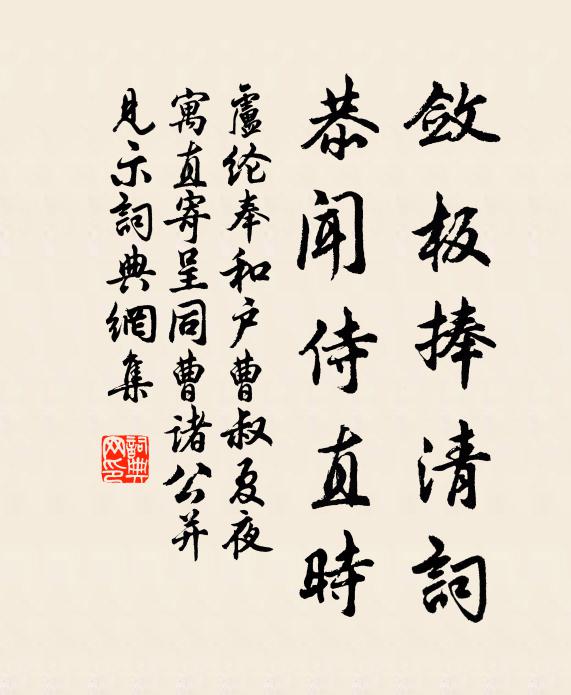 斂板捧清詞
恭聞侍直時
盧綸奉和户曹叔夏夜
寓直寄呈同曹諸公并
見示詞典網集
詞典
网印